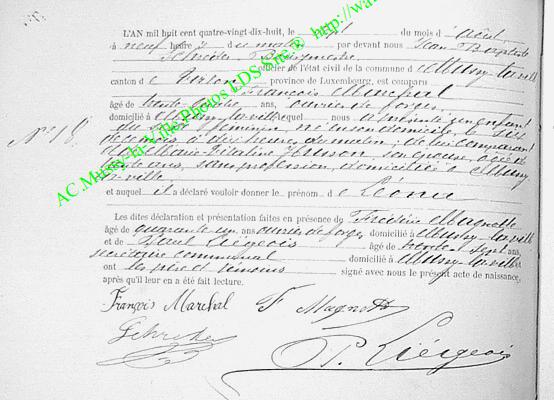 L'AN mil huit cent quatre-vingt dix-huit, le du mois d' Août
à neuf heures du matin par devant nous Jean Baptiste
Schreder Bourgmestre
officier de l'état civil de la commune de Mussy-la-ville
canton de Virton province de Luxembourg, est comparu
François Marchal
âgé de trente ans, ouvrier de forges
domicilié à Mussy-la-ville lequel nous a présenté un enfant
N° 18 du sexe féminin, né en son domicile, le
heures du matin, de lui comparant
et de Marie son épouse, âgée de
ans, sans profession, domiciliée à Mussy
la-ville
et auquel il a déclaré vouloir donner le prénom de Léonie
Les dites déclaration et présentation faites en présence de Frédéric Magnette
âgé de quarante un ans, ouvrier de forges domicilié à Mussy-la-ville
et de Paul Liégeois âgé de trente sept ans,
secrétaire communal domicilié à Mussy-la-ville
ont les père et témoins signé avec nous le présent acte de naissance,
après qu'il leur en a été fait lecture.
François Marchal F Magnette
Schreder
P. Liégeois
AC Mussy-la-Ville Photos LDS Site @ http://wa